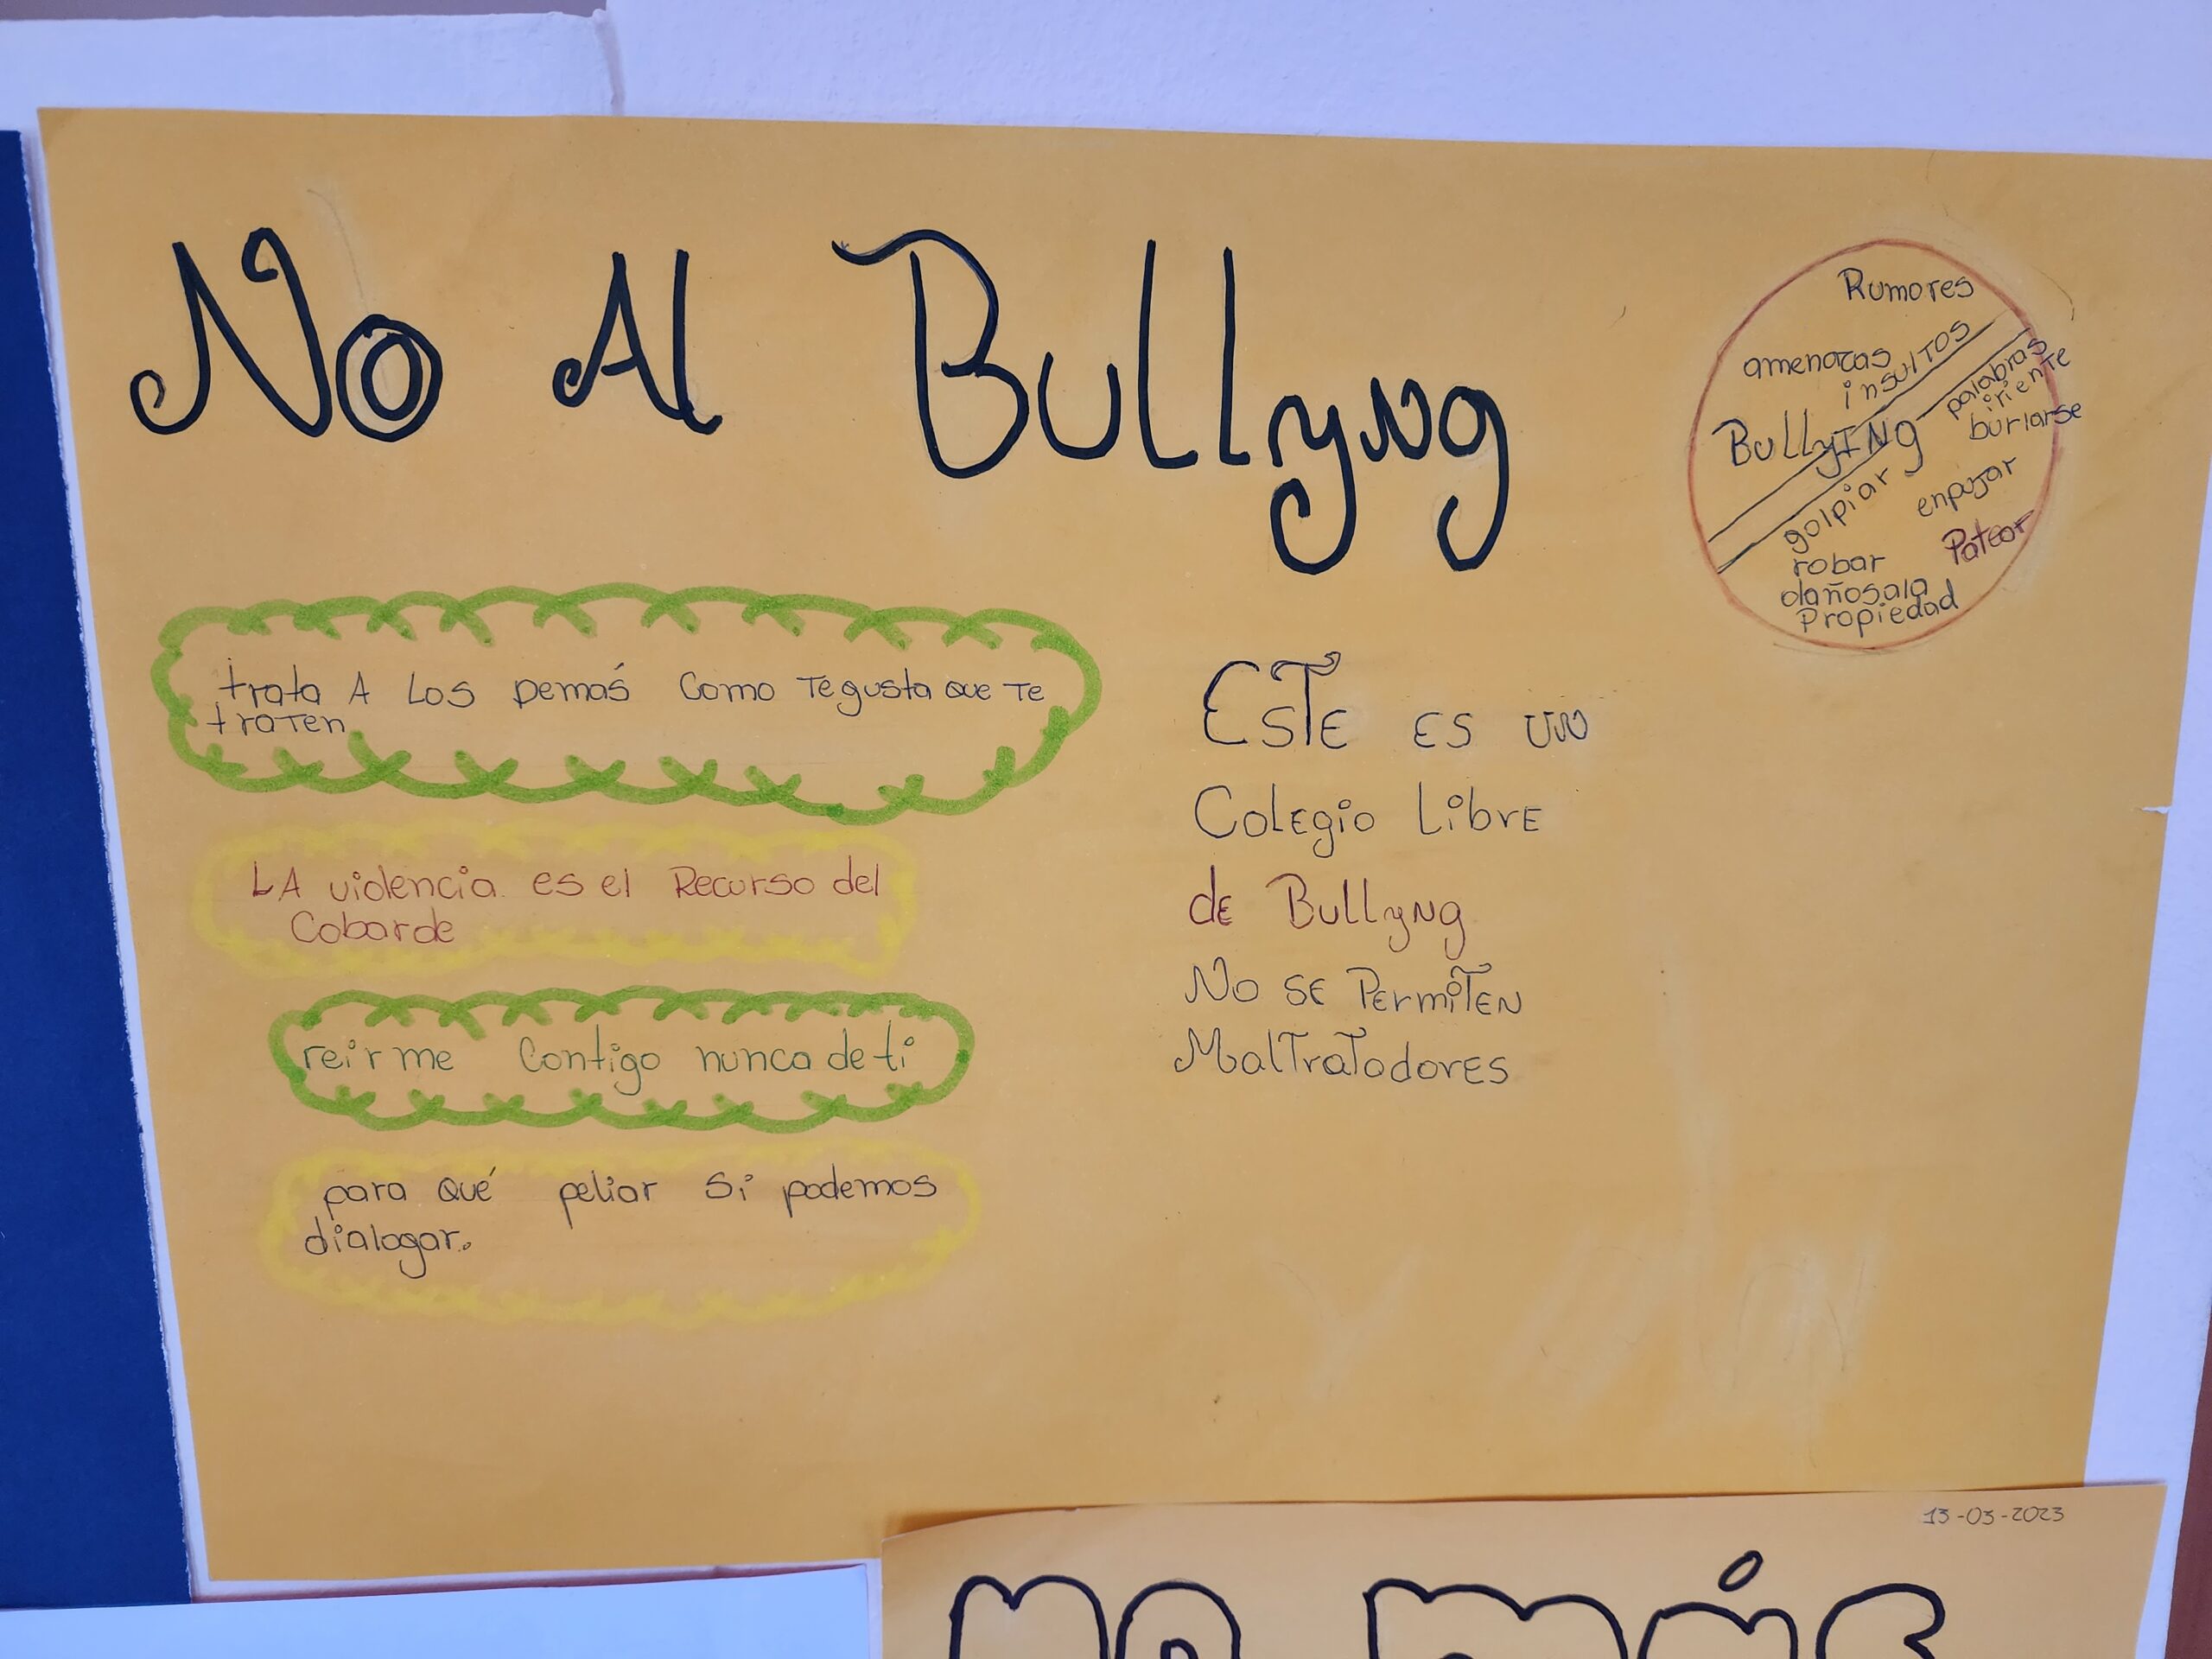 No Al Bullyng
trata A Los Demás Como Te gusta que Te
traten
LA violencia es el Recurso del
Cobarde
reirme Contigo nunca de ti
para qué peliar si podemos
dialogar.
ESTE ES UN
Colegio Libre
de Bullyng
No SE PermiTEN
MalTraTadorES
Rumores
amenazas
insulTos
BullyINg
palabras
iriente
burlarse
golpiar
enpujar
Patear
robar
daños a la
Propiedad
13-03-2023
no más